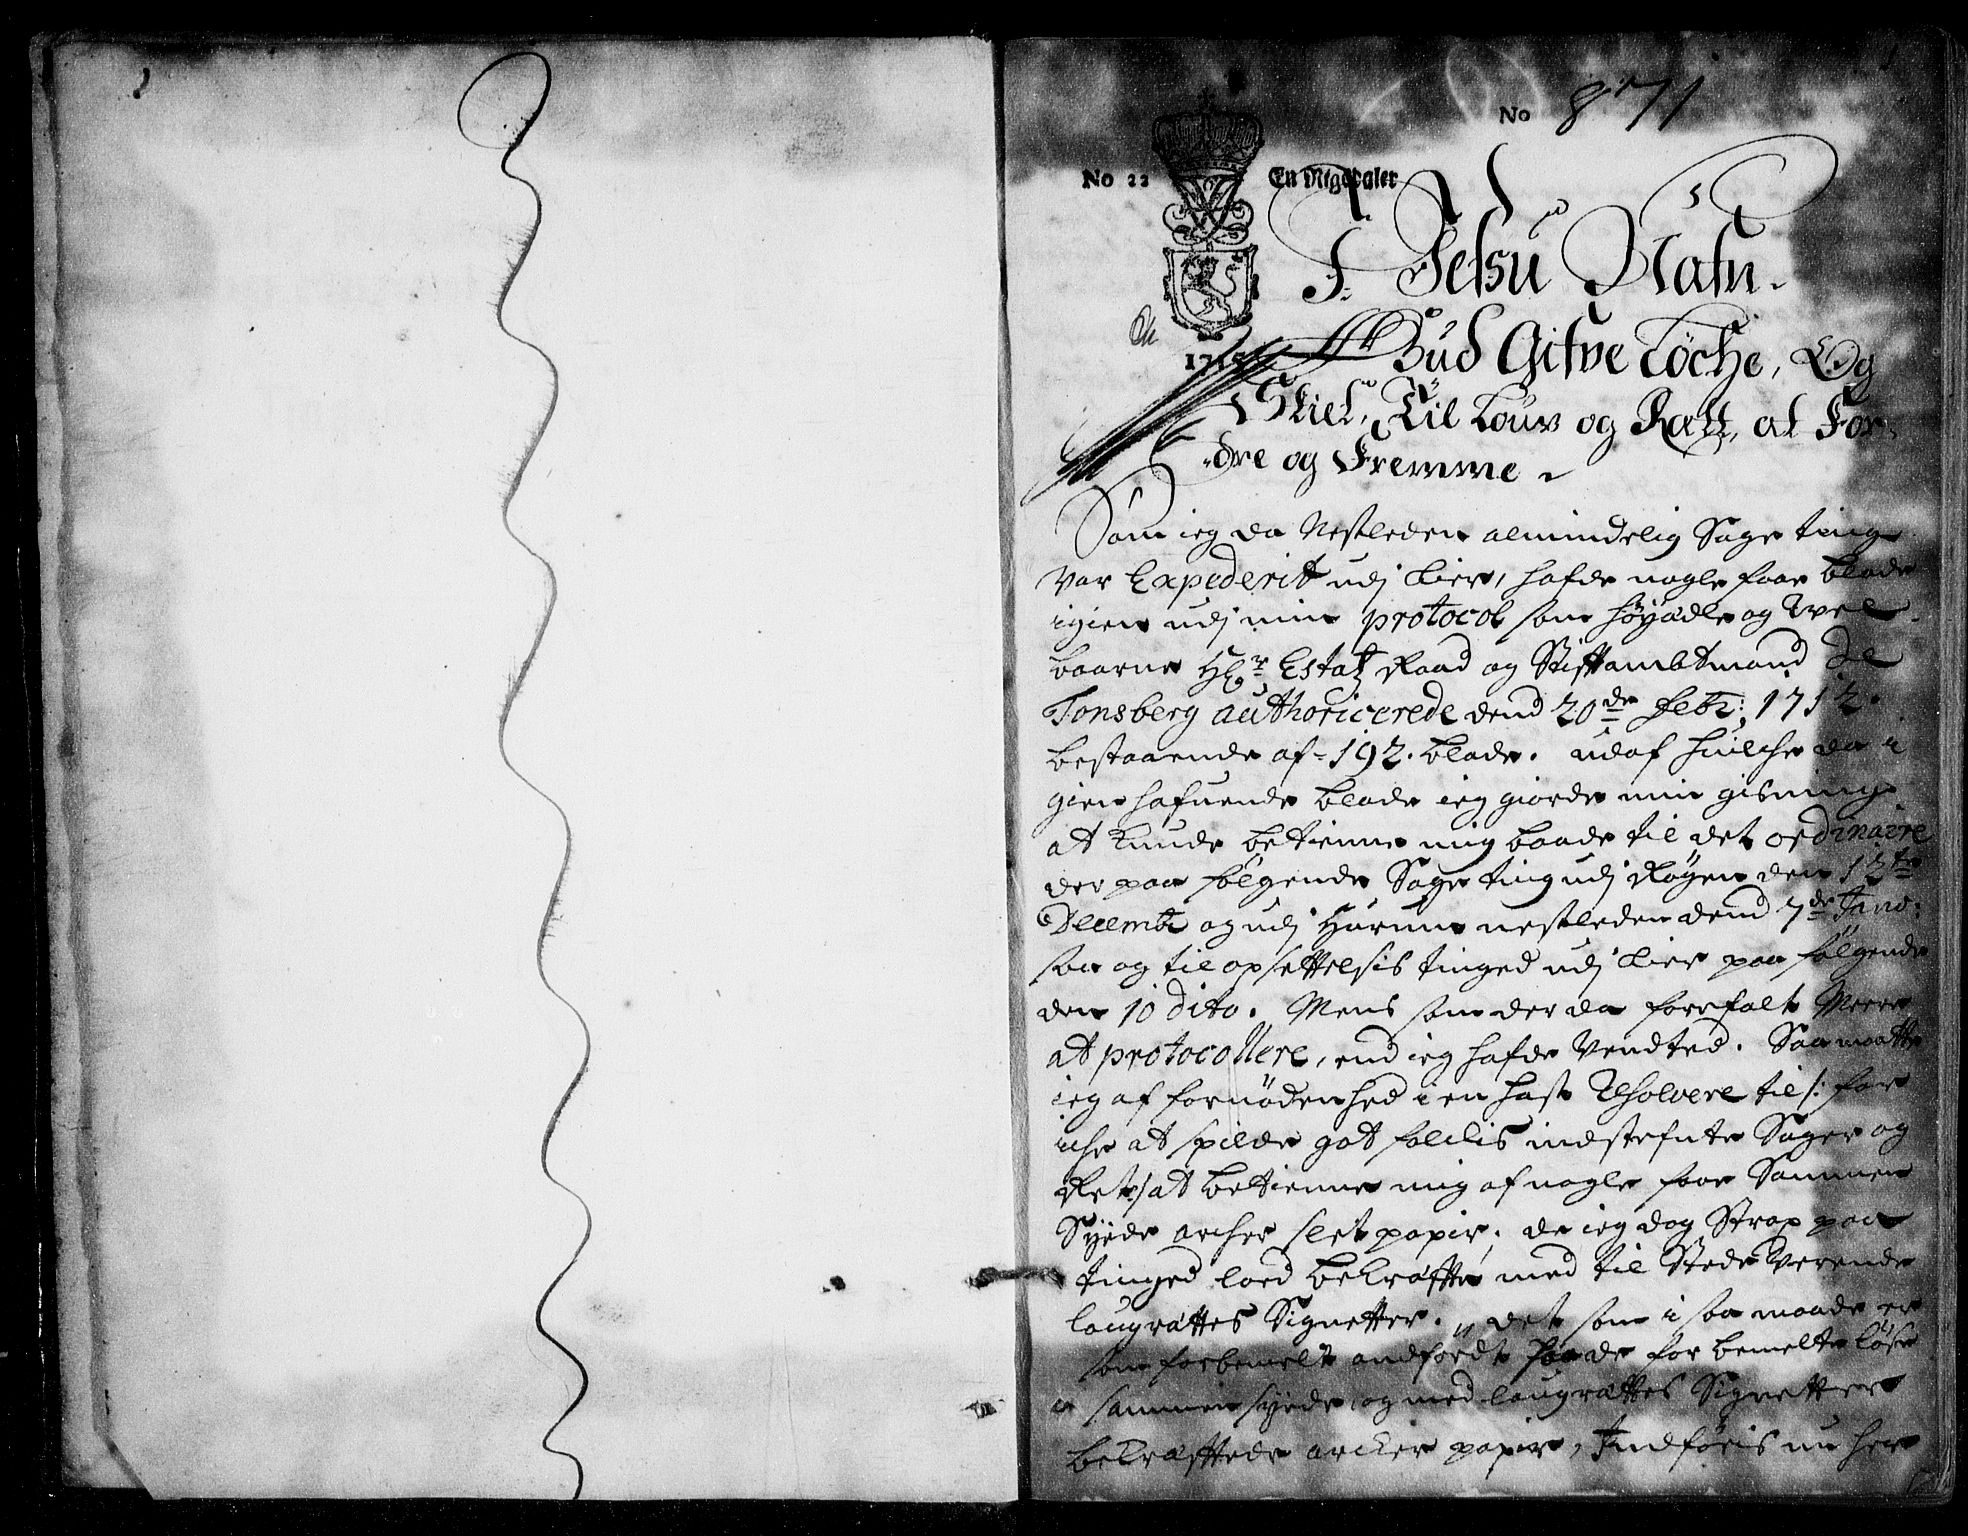 No 871
No 22 En Rigsdaler
1715
I Jesu Nafn
Gud Gifve Løche, Og
Skiel, Til Louv og Rætt, at For-
dre og Fremme
Som ieg da Nestleden almindelig Sage ting
var Expederit udj Lier, hafde nogle faae blade
igien udj min protocol som høyædle og Wel-
baarne Hr Estatz Raad og Stiftambtmand de
Tonsberg authoricerede dend 20de febr: 1712.
bestaaende af 192. blade. udaf huilche da i
gien hafuende blade ieg giorde min gisning
at kunde betienne mig baade til det ordinaire
der paa følgende Sage ting udj Røgen den 12te
Decembr og udj Hurum nestleden dend 7de Janv:
saa og til opsettelsis tinged udj Lier paa følgende
den 10 dito. Mens som der da forefalt Meere
at protocollere, end ieg hafde Vendted. Saa maatte
ieg af fornødenhed i en hast Resolvere til /: for
iche at spilde got folckis indstefnte Sager og
Ret :/ at betienne mig af nogle faae Sammen
Syede archer slet papir, de ieg dog Strax paa
tinged loed bekræfte med til Stede Verende
laugrættes Signetter. det som i saa maade er
som forbemelt andfordt paa de for bemelte løse
sammen syede og med laugrættes Signetter
bekræftede arcker papir, Indføris nu her